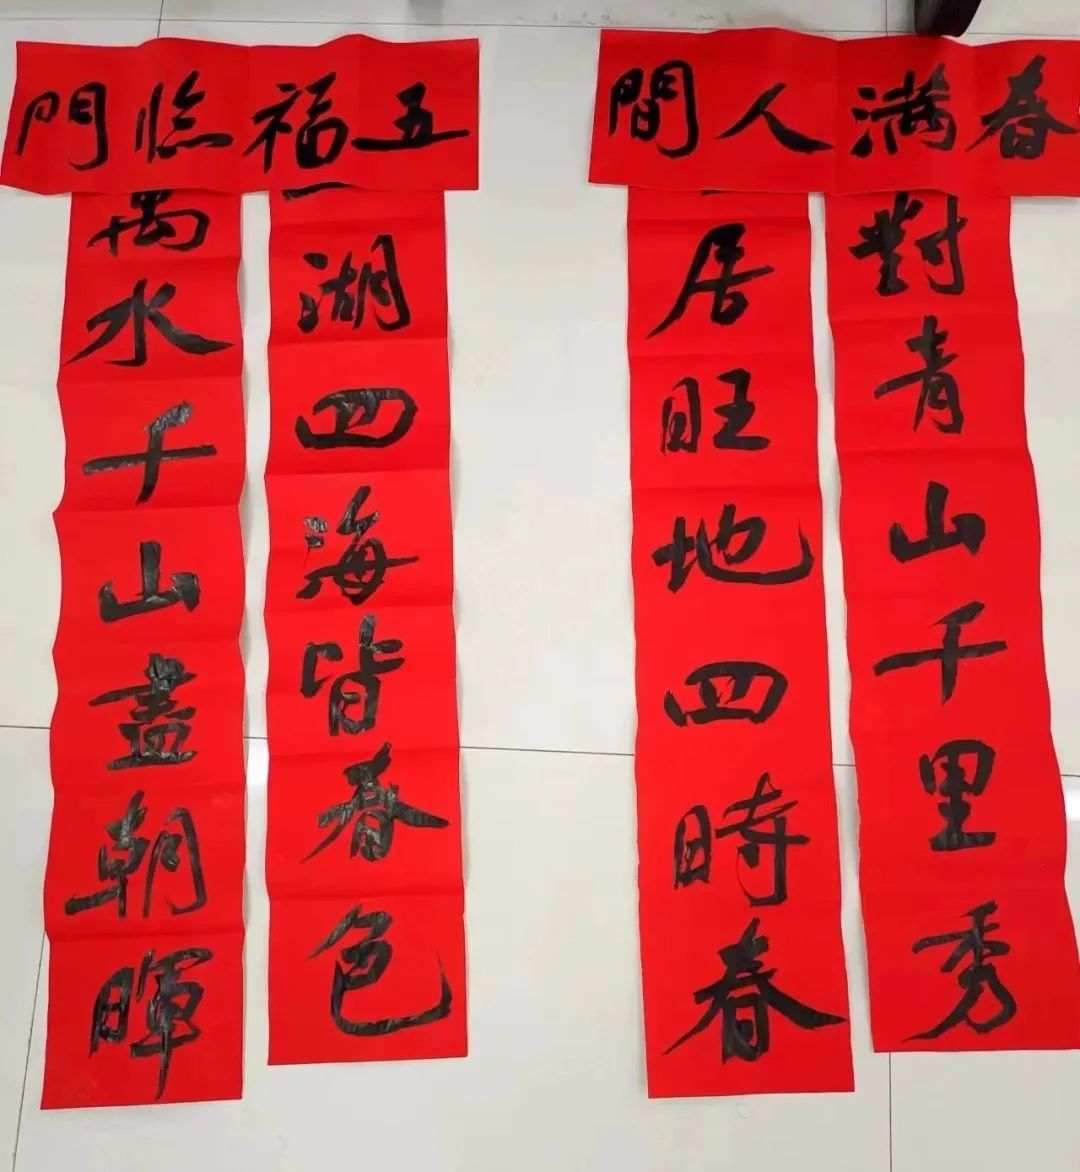 春滿人間
對青山千里秀
居旺地四時春
五福臨門
湖四海皆春色
萬水千山盡朝暉